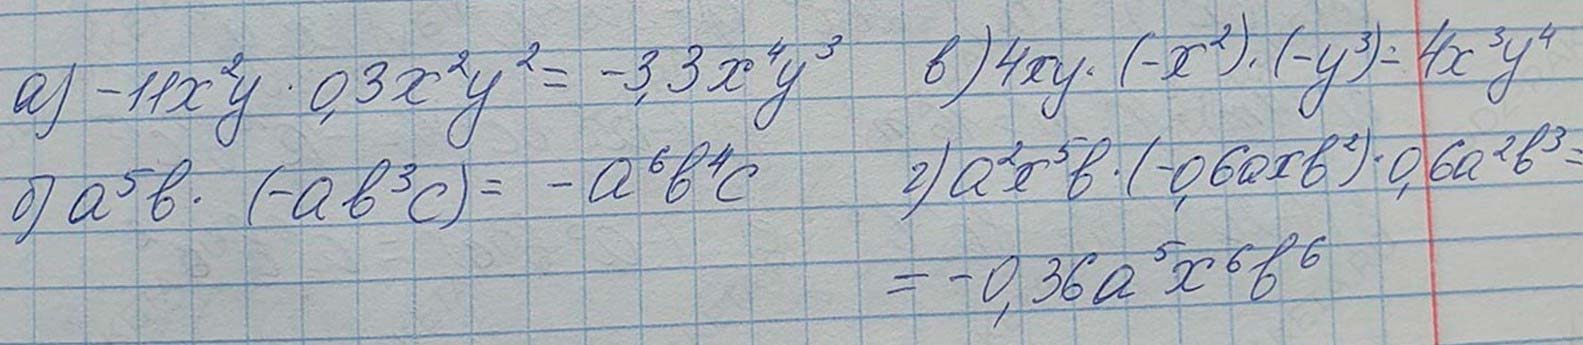 а) -11x²y · 0,3x²y² = -3,3x⁴y³
б) a⁵b · (-ab³c) = -a⁶b⁴c
в) 4xy · (-x²) · (-y³) = 4x³y⁴
г) a²x⁵b · (-0,6axb²) · 0,6a²b³ =
= -0,36a⁵x⁶b⁶